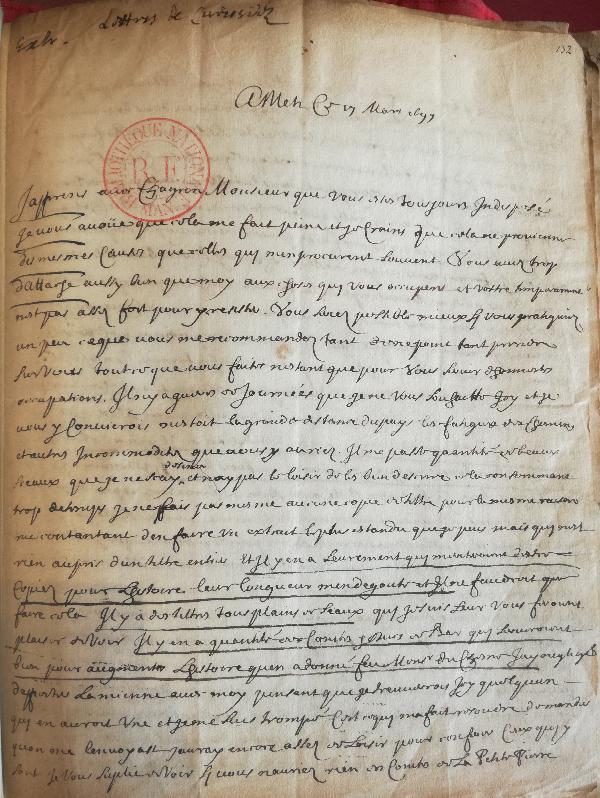 Extr. Lettres de Curiosité
132
A Metz Ce 17 Mars 1697
BIBLIOTHEQUE NATIONALE
R.F.
MAN
J'apprens avec Chagrin Monsieur que vous estes tousjours Indisposé
Je vous avoüe que cela me fait peine et je Crains que cela ne provienne
des mesmes Causes que celles qui m'en procurent souvent Vous avez trop
d'attache aussy bien que moy aux choses qui vous occupent et votre temperament
n'est pas assez fort pour y resister. Vous feriez possible mieux si vous pratiquiez
un peu ce que vous me recommandez tant de ne point tant prendre
sur vous tout ce que vous faites n'estant que pour vous servir d'honnestes
occupations. Il n'y a gueres de Journées que je ne vous souhaitte Icy et je
vous y Convierois n'estoit la grande distance du pays les fatigues des Chemins
et autres Incommodités que vous y auriez. Il me passe quantité de beaux
sceaux que je ne scay dessiner et n'ay pas le loisir de les bien descrire cela consommant
trop de temps je ne fais pas mesme aucune copie de tiltre pour la mesme raison
me contantant d'en faire un extrait le plus estandu que je puis mais qui n'est
rien aupris d'un tiltre entier Et Il y en a seurement qui meriteroient d'estre
Copiez pour l'histoire leur longueur m'en degoute et Il ne faudroit que
faire cela Il y a des tiltres tous plains de sceaux qui je suis seur vous feroient
plaisir de voir Il y en a quantité des Comtes et Ducs de Bar qui serviroient
bien pour augmenter l'histoire qu'en a donné feu Monsr du Chesne J'ay negligé
d'apporter la mienne avec moy pensant que je trouverois Icy quelqu'un
qui en auroit une et je me suis trompé C'est ce qui m'a fait resoudre de mander
qu'on me l'envoyast j'auray encore assez de loisir pour confronter Ceux qui y
sont je vous suplie de voir si vous n'auriez rien des Comtes de La Petite Pierre